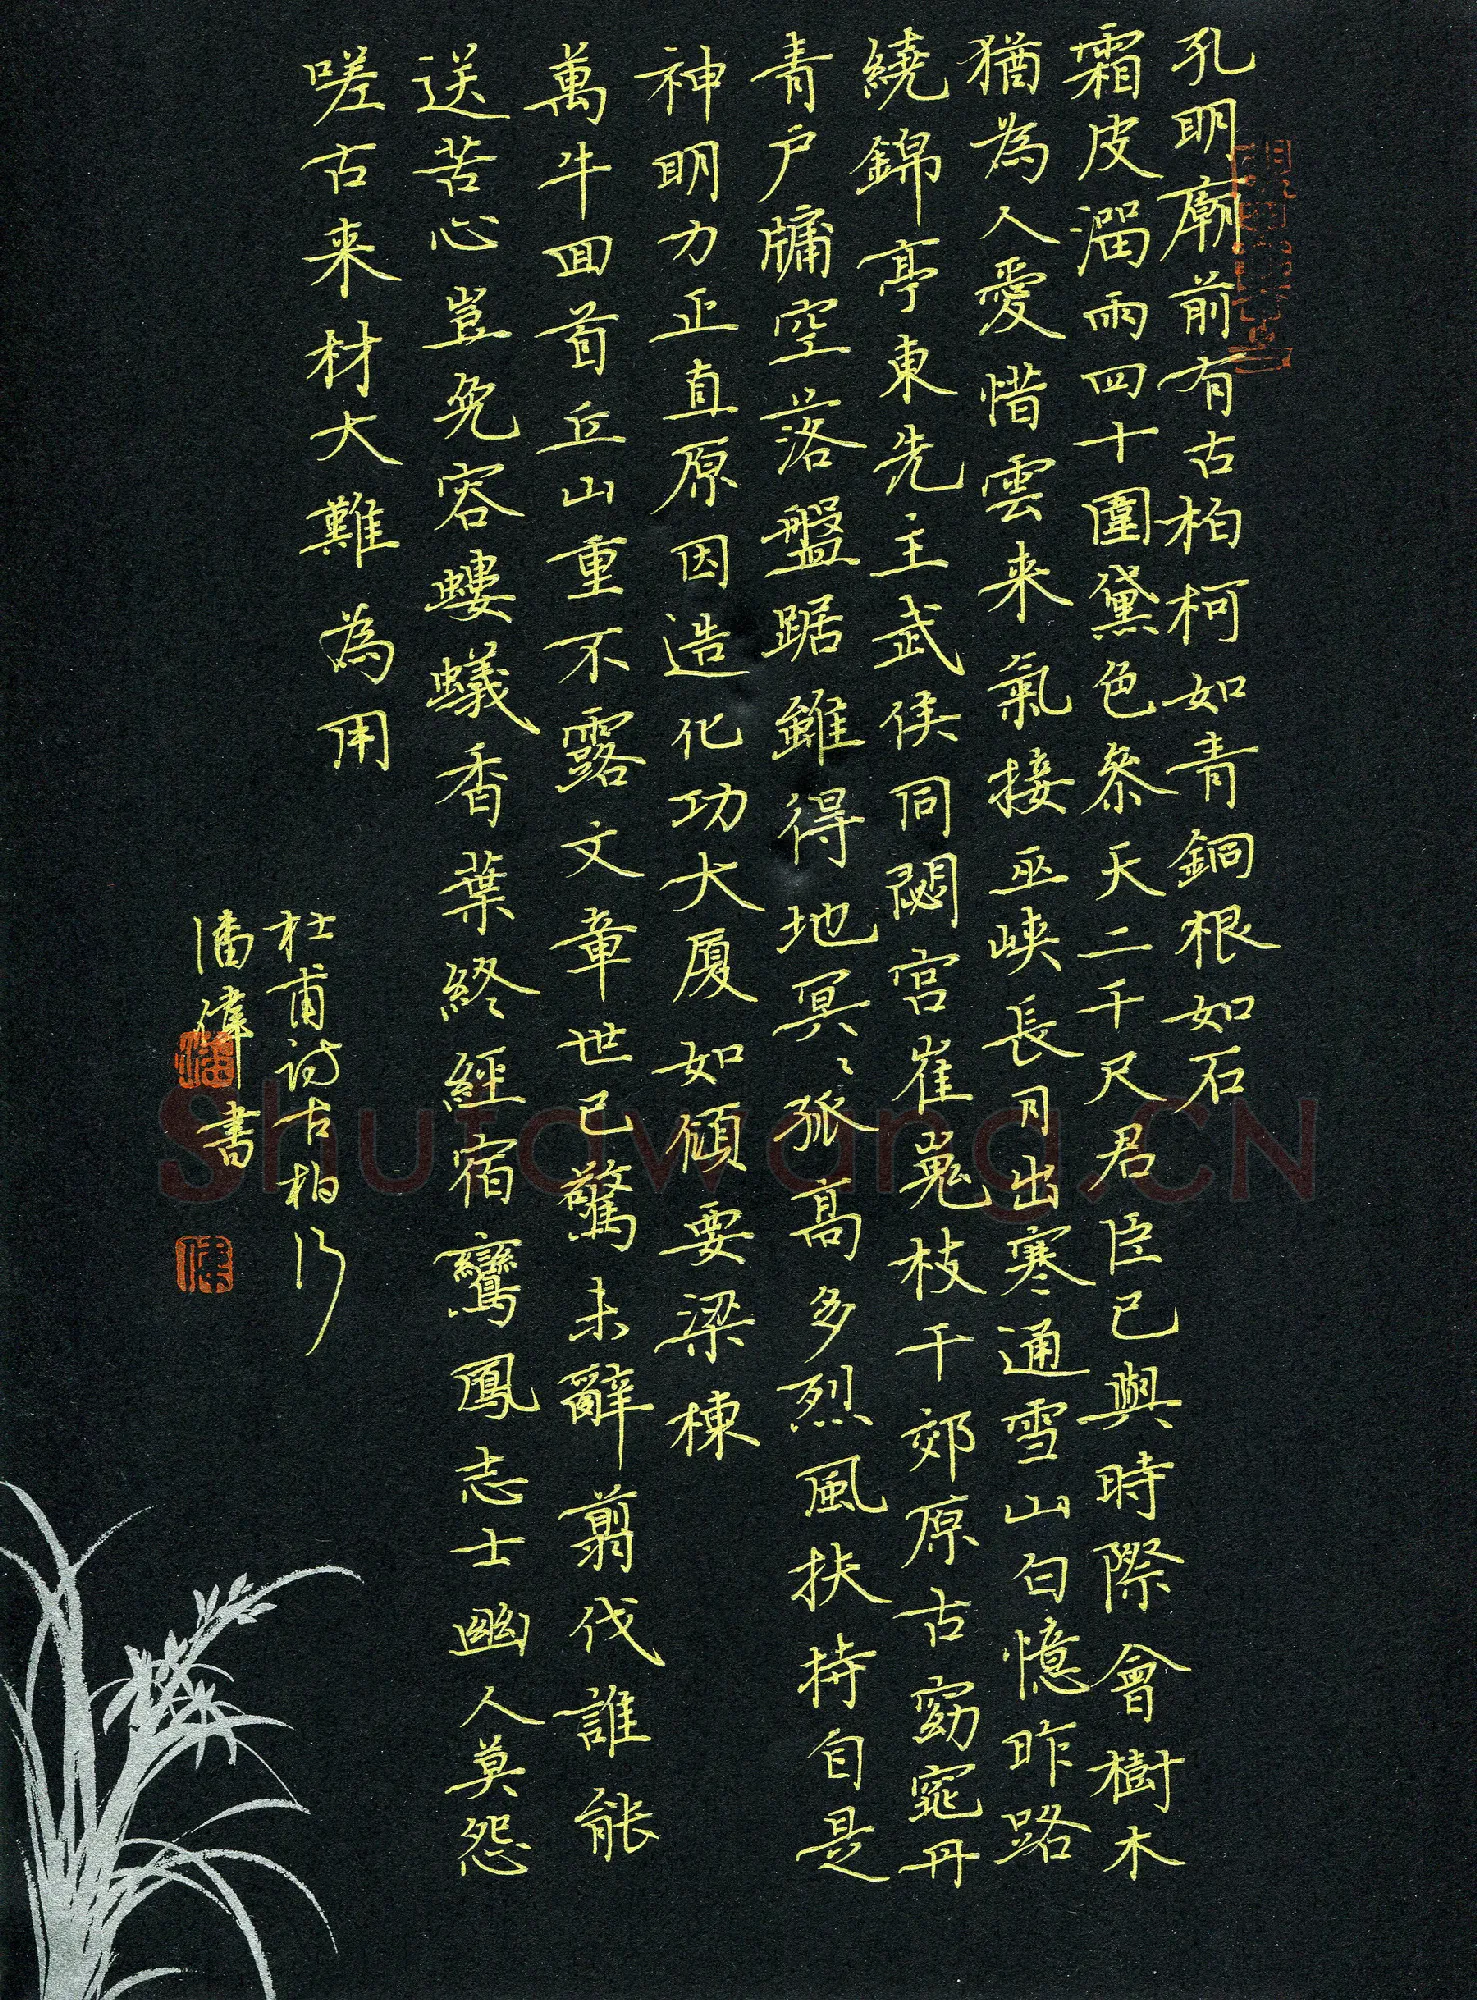 孔明廟前有古柏柯如青銅根如石
霜皮溜雨四十圍黛色参天二千尺君臣已與時際會樹木
猶為人愛惜雲来氣接巫峡長月出寒通雪山白憶昨路
繞錦亭東先主武侯同閟宮崔嵬枝干郊原古窈窕丹
青户牖空落盤踞雖得地冥冥孤高多烈風扶持自是
神明力正直原因造化功大厦如傾要梁棟
萬牛回首丘山重不露文章世已驚未辭翦伐誰能
送苦心豈免容螻蟻香葉終經宿鸞鳳志士幽人莫怨
嗟古来材大難為用
杜甫诗古柏行
潘偉書
偉
Shufawang.CN